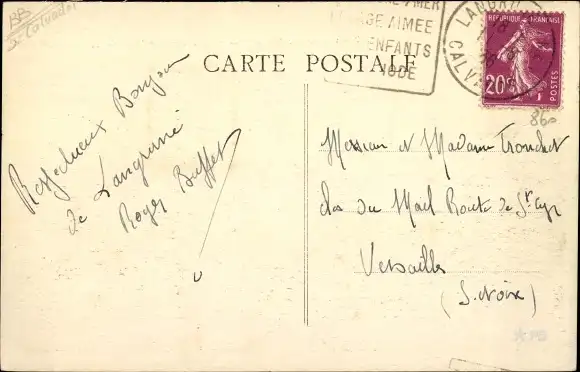 BB
Calvados
MER
PLAGE AIMEE
ENFANTS
MODE
LANGRU
CALV
REPUBLIQUE FRANÇAISE
20c
POSTES
860
CARTE POSTALE
Respectueux Bonjour
de Langrune
Roger Buffet
Monsieur & Madame Tronchet
Clos du Mail Route de St Cyr
Versailles
(S. &oise)